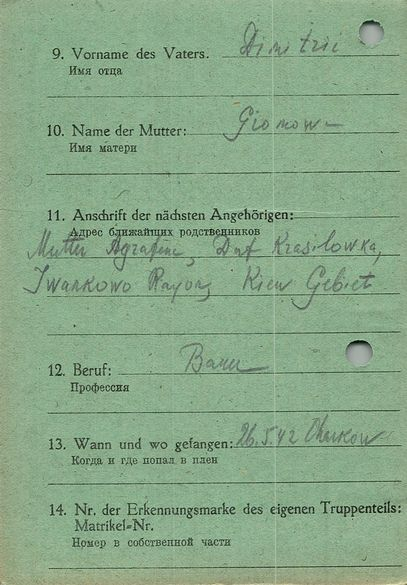 9. Vorname des Vaters. Dimitri
Имя отца
10. Name der Mutter:
Имя матери
11. Anschrift der nächsten Angehörigen:
Адрес ближайших родственников
Mutter Agrafene, Dorf Krasilowka,
Iwankowo Rayon, Kiew Gebiet
12. Beruf: Bauer
Профессия
13. Wann und wo gefangen: 26.5.42 Charkow
Когда и где попал в плен
14. Nr. der Erkennungsmarke des eigenen Truppenteils:
Matrikel-Nr.
Номер в собственной части